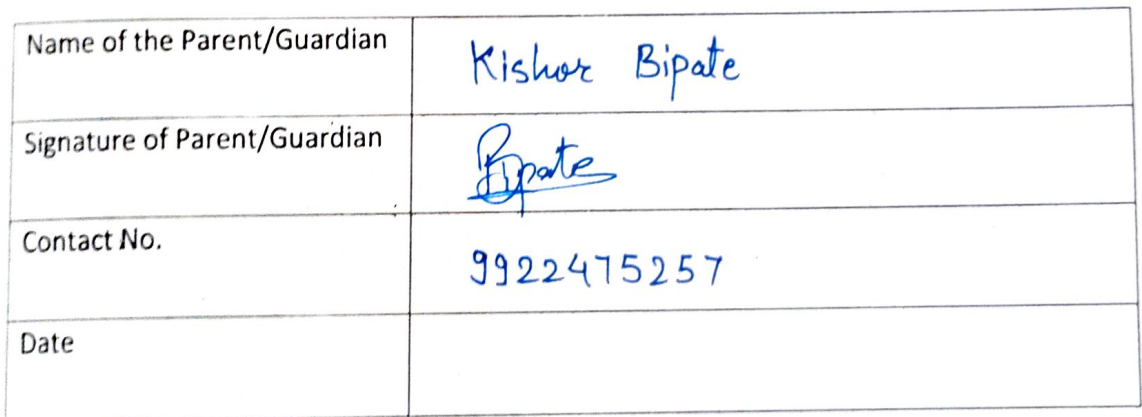 Name of the Parent/Guardian Kishor Bipate
Signature of Parent/Guardian Bipate
Contact No. 9922475257
Date